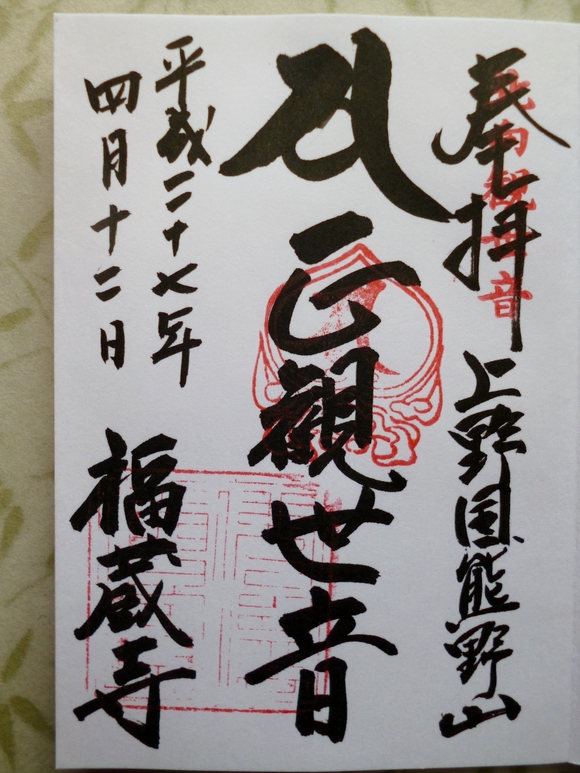 奉拝
上野国熊野山
正観世音
平成二十七年
四月十二日
福蔵寺